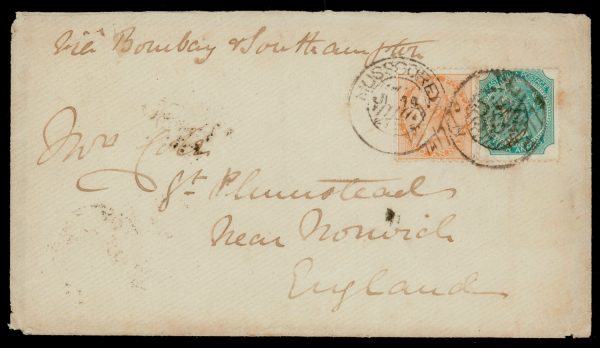 Viâ Bombay & Southampton
MUSSOOREE
Mrs
Gt. Plumstead
Near Norwich
England